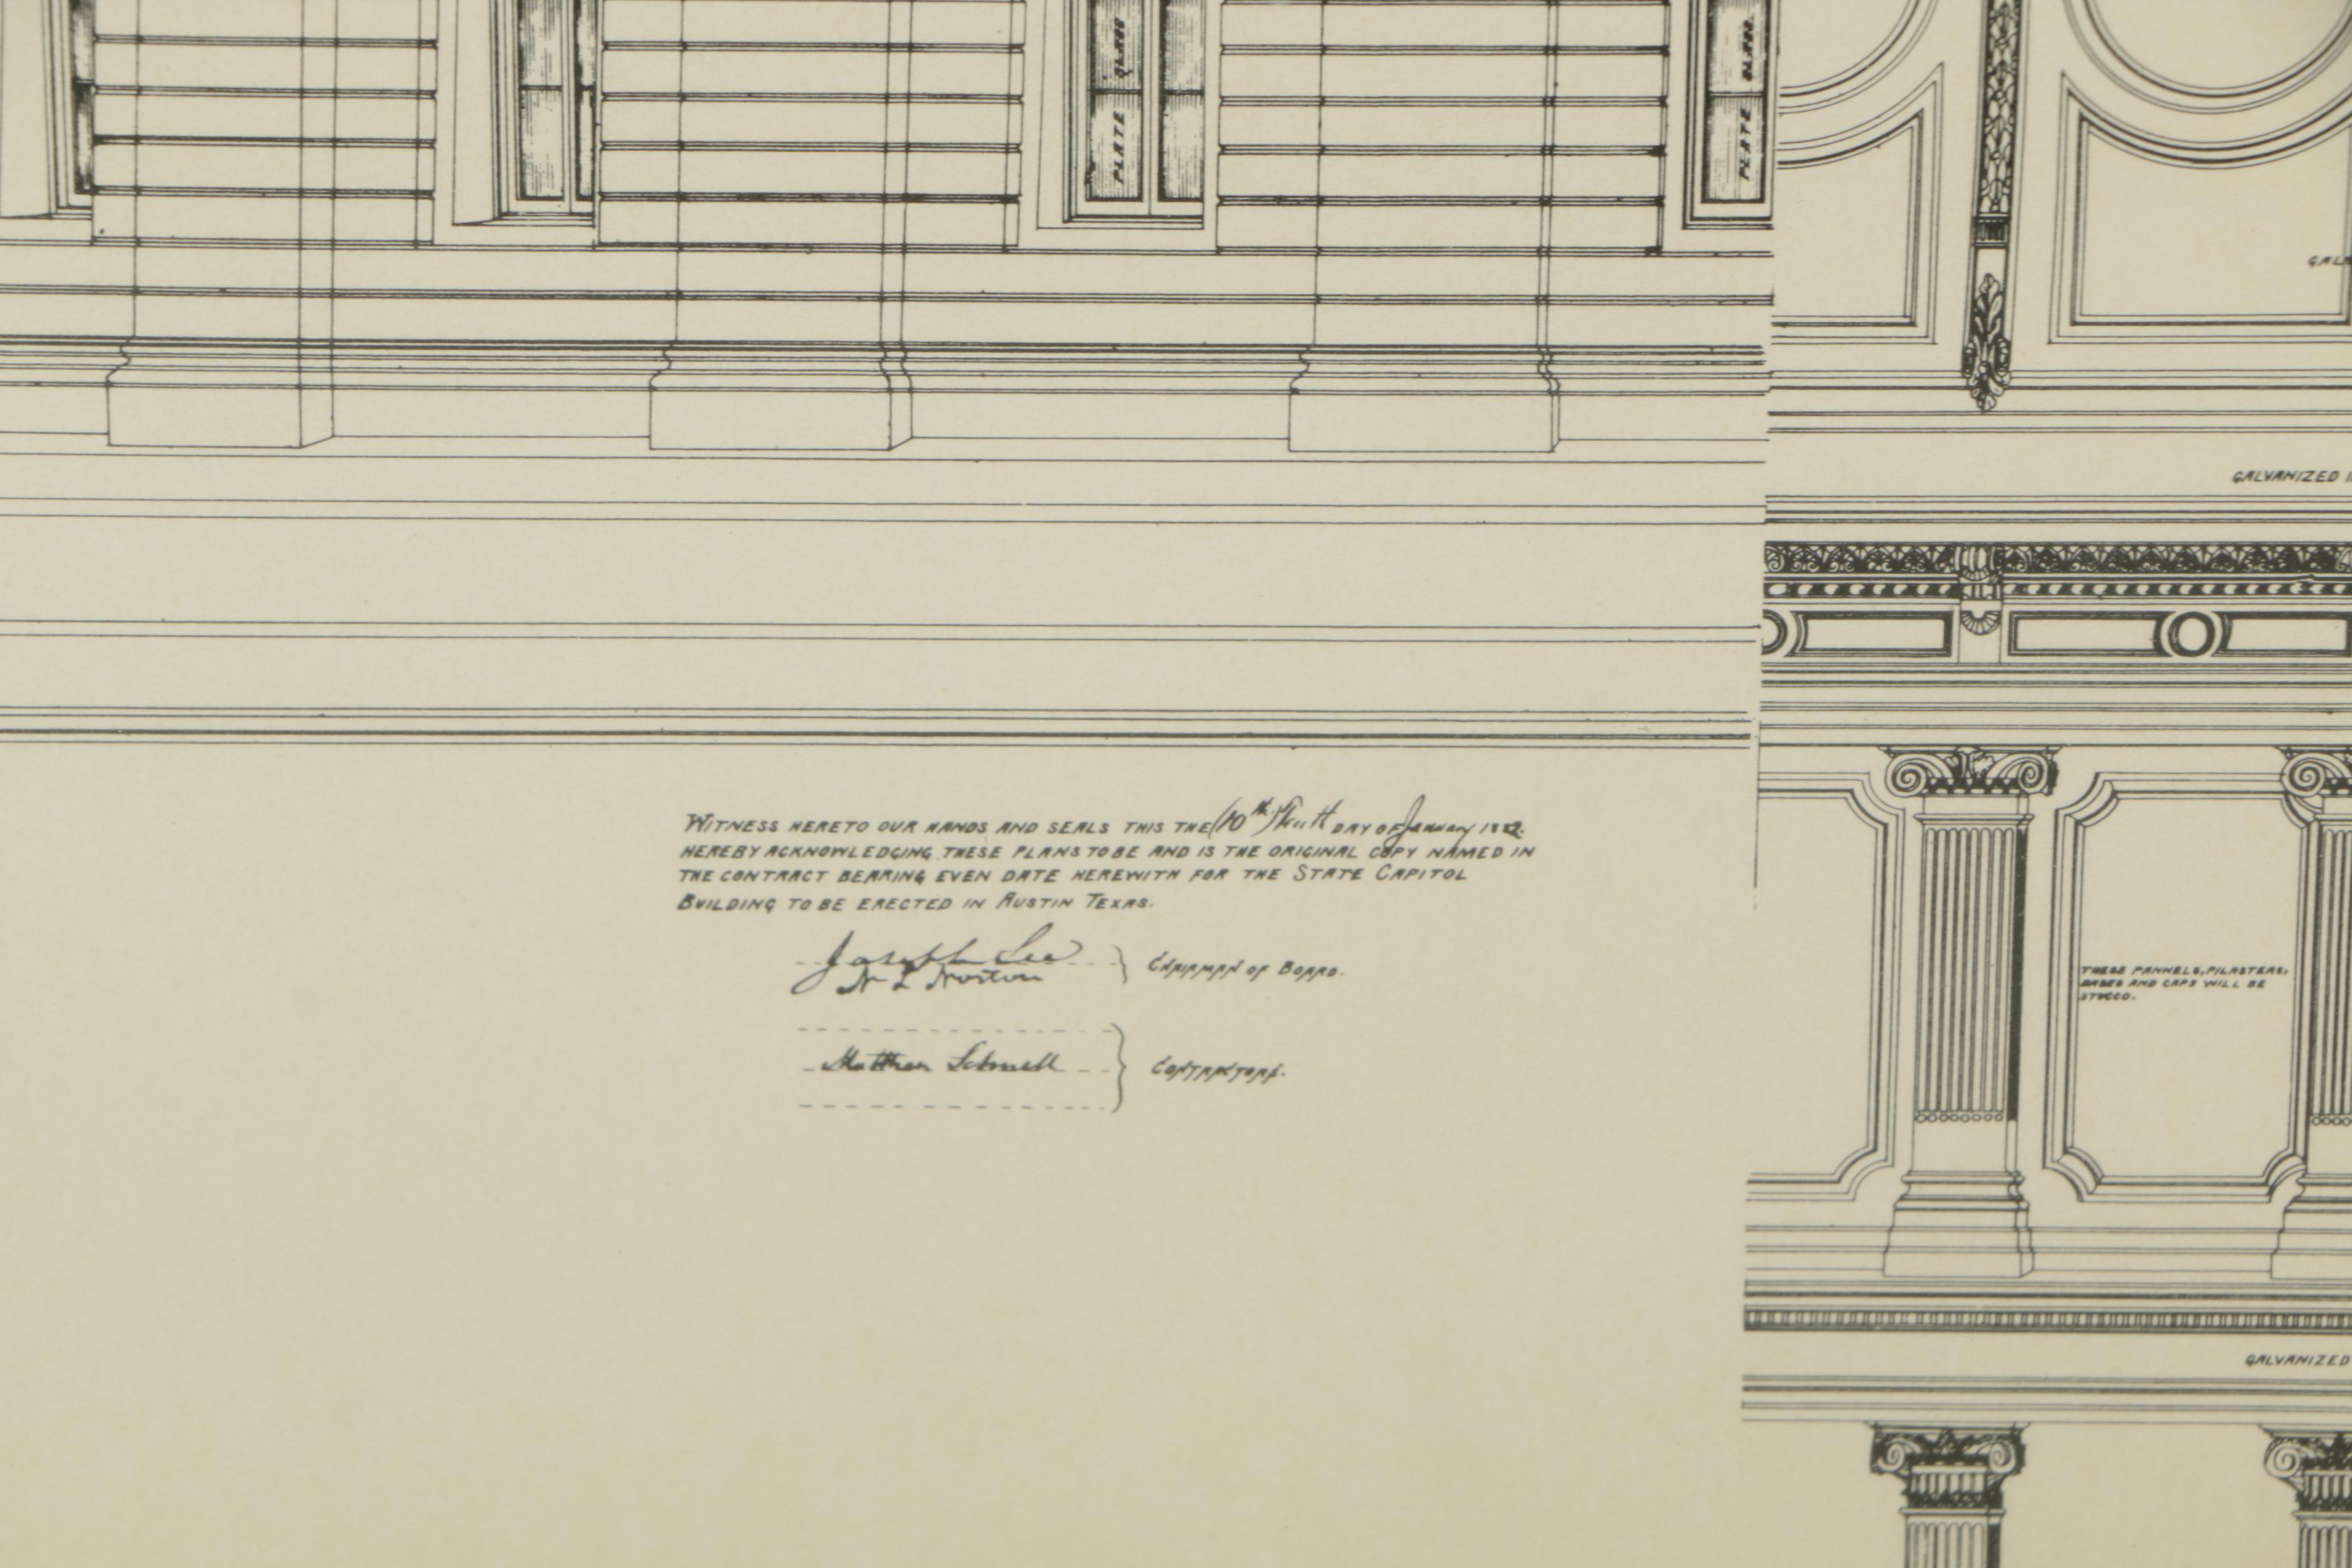 PLATE GLASS
PLATE GLASS
GALVANIZED
WITNESS HERETO OUR HANDS AND SEALS THIS THE (10th) Tenth DAY OF January 1882.
HEREBY ACKNOWLEDGING THESE PLANS TO BE AND IS THE ORIGINAL COPY NAMED IN
THE CONTRACT BEARING EVEN DATE HEREWITH FOR THE STATE CAPITOL
BUILDING TO BE ERECTED IN AUSTIN TEXAS.
Joseph Lee
N L Norton
CHAIRMAN OF BOARD.
THESE PANNELS, PILASTERS,
BASES AND CAPS WILL BE
STUCCO.
Matthew Schnell
CONTRACTORS.
GALVANIZED